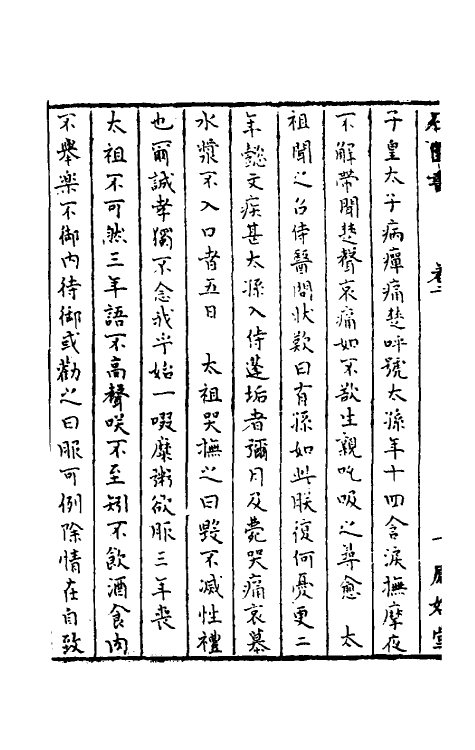 石匱書 卷二 一 鳳嬉堂
子皇太子病癉痛楚呼號太孫年十四含淚撫摩夜
不解帶聞楚聲哀痛如不欲生親吮吸之尋愈 太
祖聞之召侍醫問狀歎曰有孫如此朕復何憂更二
年懿文疾甚太孫入侍蓬垢者彌月及薨哭痛哀慕
水漿不入口者五日 太祖哭撫之曰毀不滅性禮
也爾誠孝獨不念我乎始一啜糜粥欲服三年喪
太祖不可然三年語不高聲咲不至矧不飲酒食肉
不舉楽不御內待御或勸之曰服可例除情在自致